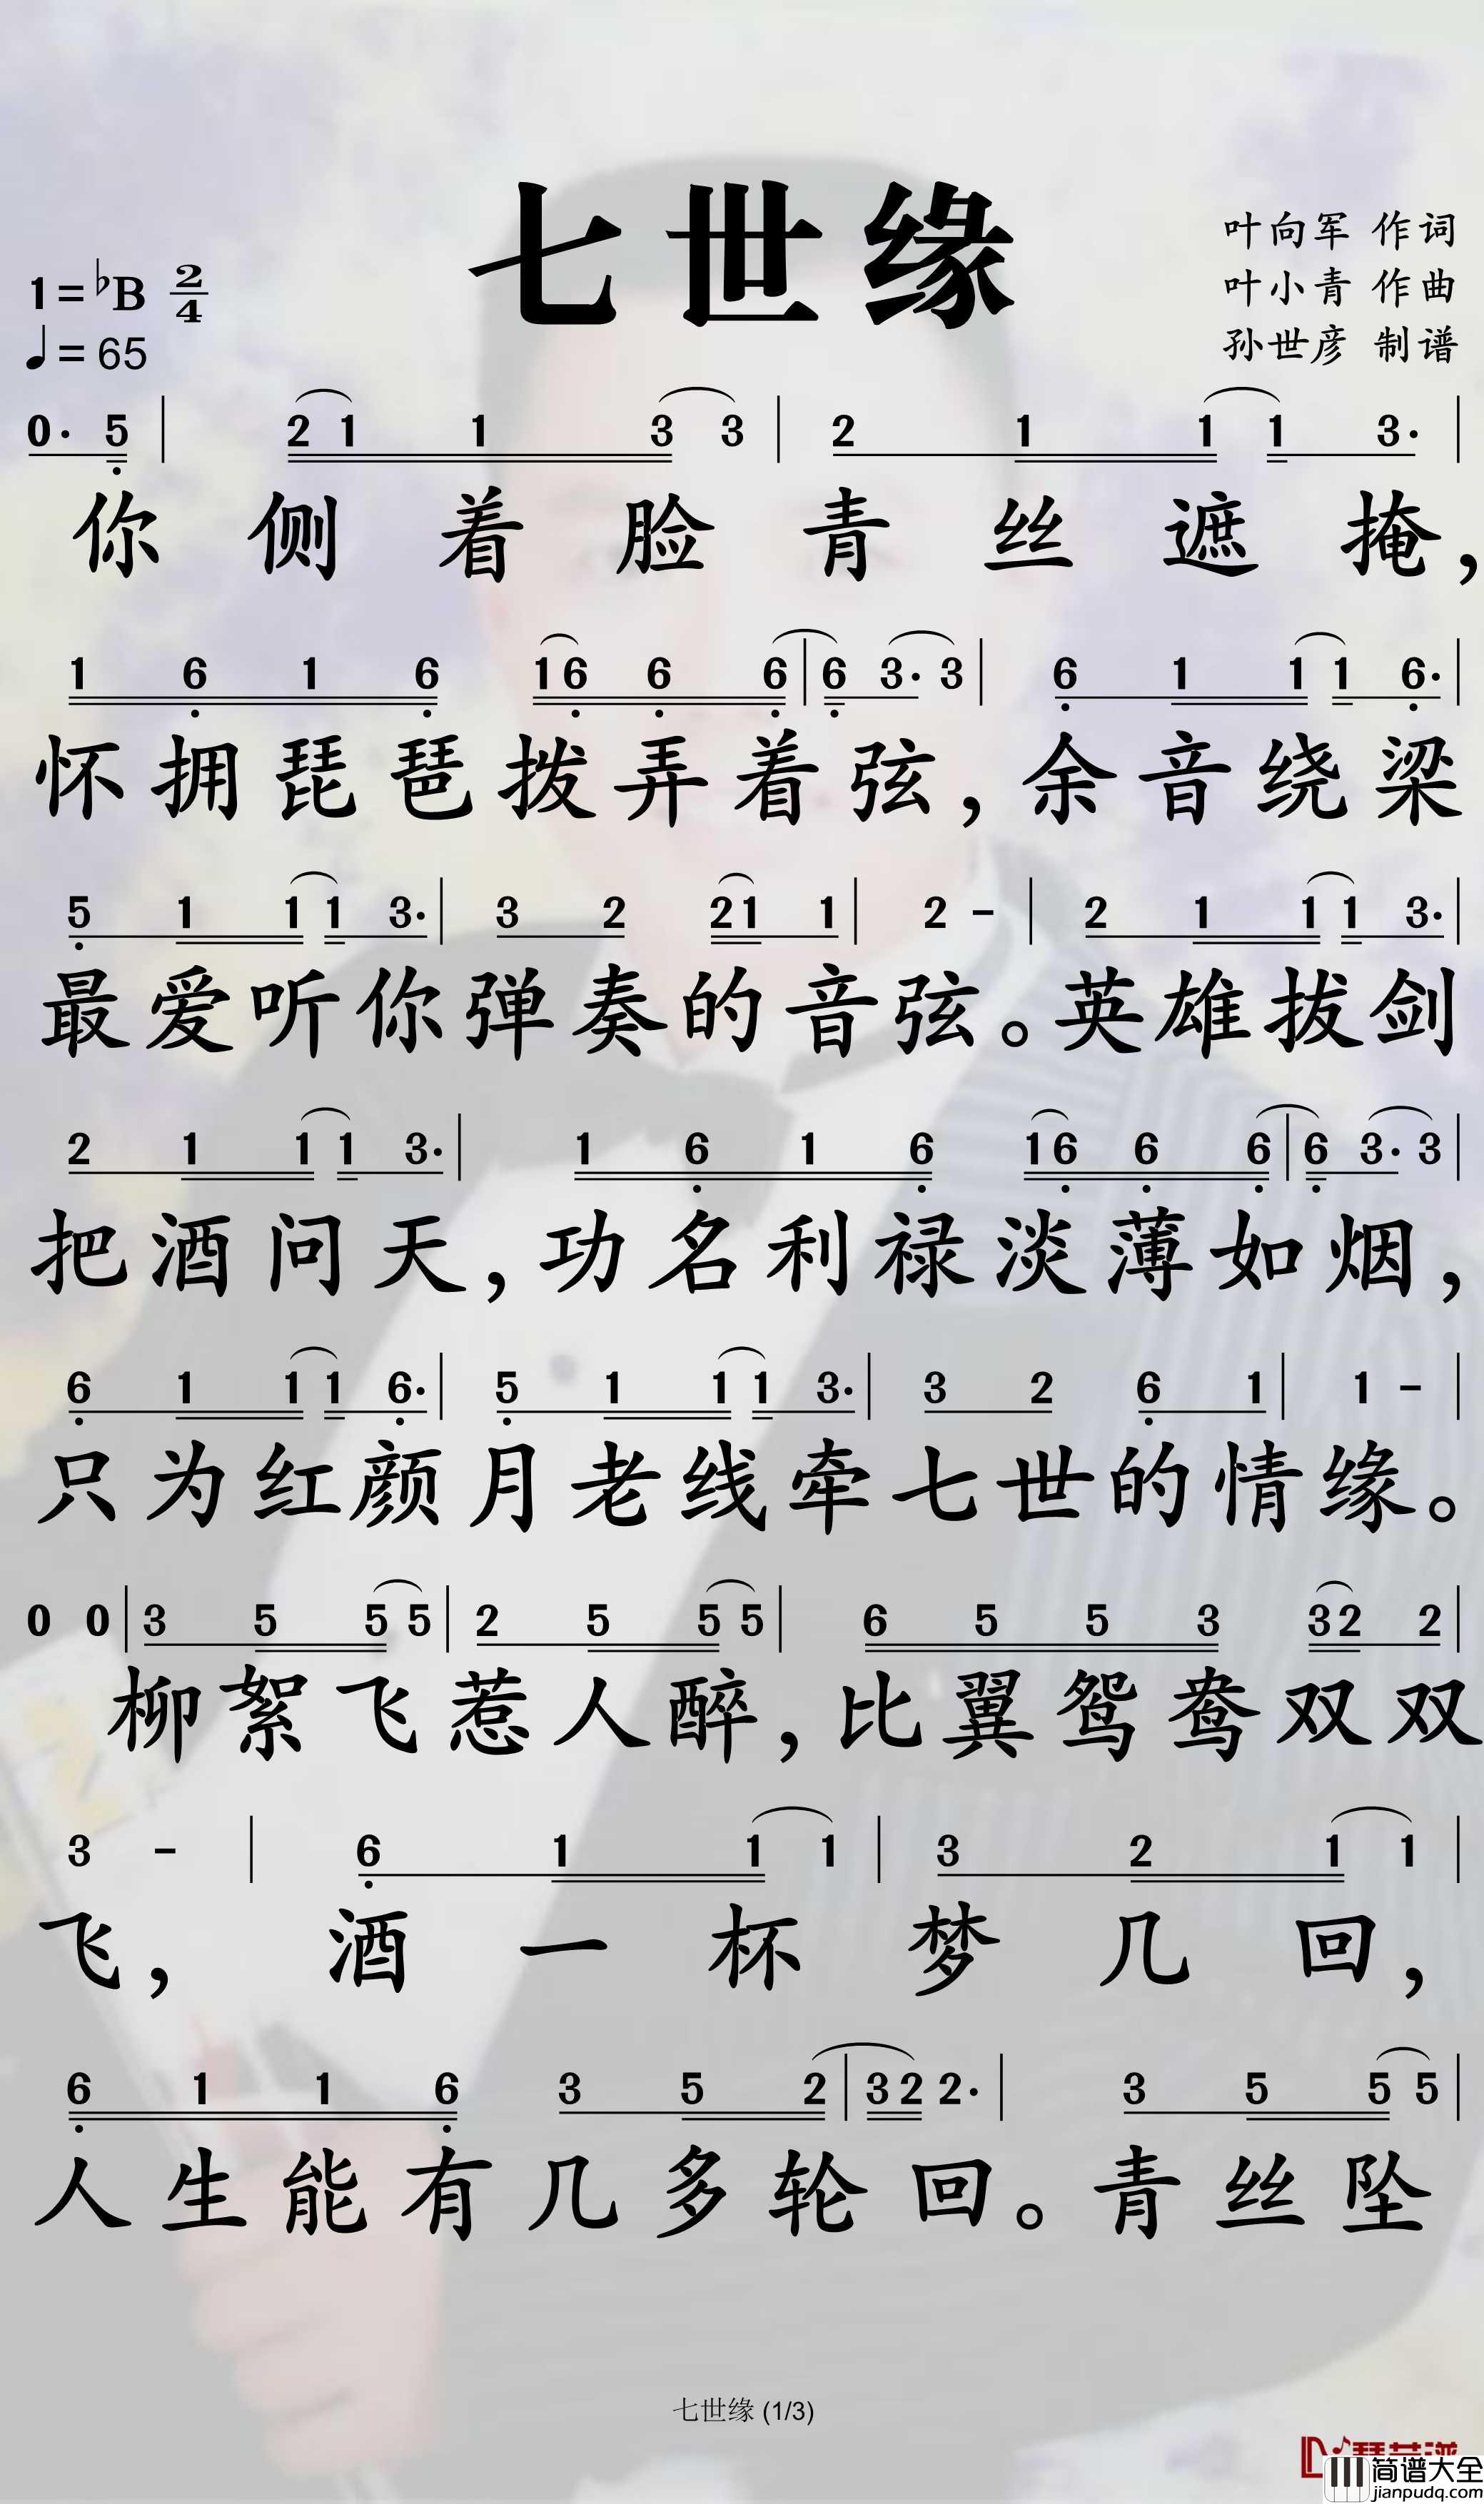 七世缘
叶向军 作词
叶小青 作曲
孙世彦 制谱
1=♭B 2/4
♩=65
0. 5 | 2 1 1 3 3 | 2 1 1 1 3. |
你侧着脸青丝遮掩，
1 6 1 6 1 6 6 6 | 6 3. 3 | 6 1 1 1 6. |
怀拥琵琶拨弄着弦，余音绕梁
5 1 1 1 3. | 3 2 2 1 1 | 2 - | 2 1 1 1 3. |
最爱听你弹奏的音弦。英雄拔剑
2 1 1 1 3. | 1 6 1 6 1 6 6 6 | 6 3. 3 |
把酒问天，功名利禄淡薄如烟，
6 1 1 1 6. | 5 1 1 1 3. | 3 2 6 1 | 1 - |
只为红颜月老线牵七世的情缘。
0 0 | 3 5 5 5 | 2 5 5 5 | 6 5 5 3 3 2 2 |
柳絮飞惹人醉，比翼鸳鸯双双
3 - | 6 1 1 1 | 3 2 1 1 |
飞，酒一杯梦几回，
6 1 1 6 3 5 2 | 3 2 2. | 3 5 5 5 |
人生能有几多轮回。青丝坠
七世缘 (1/3)
简谱大全
jianpudq.com